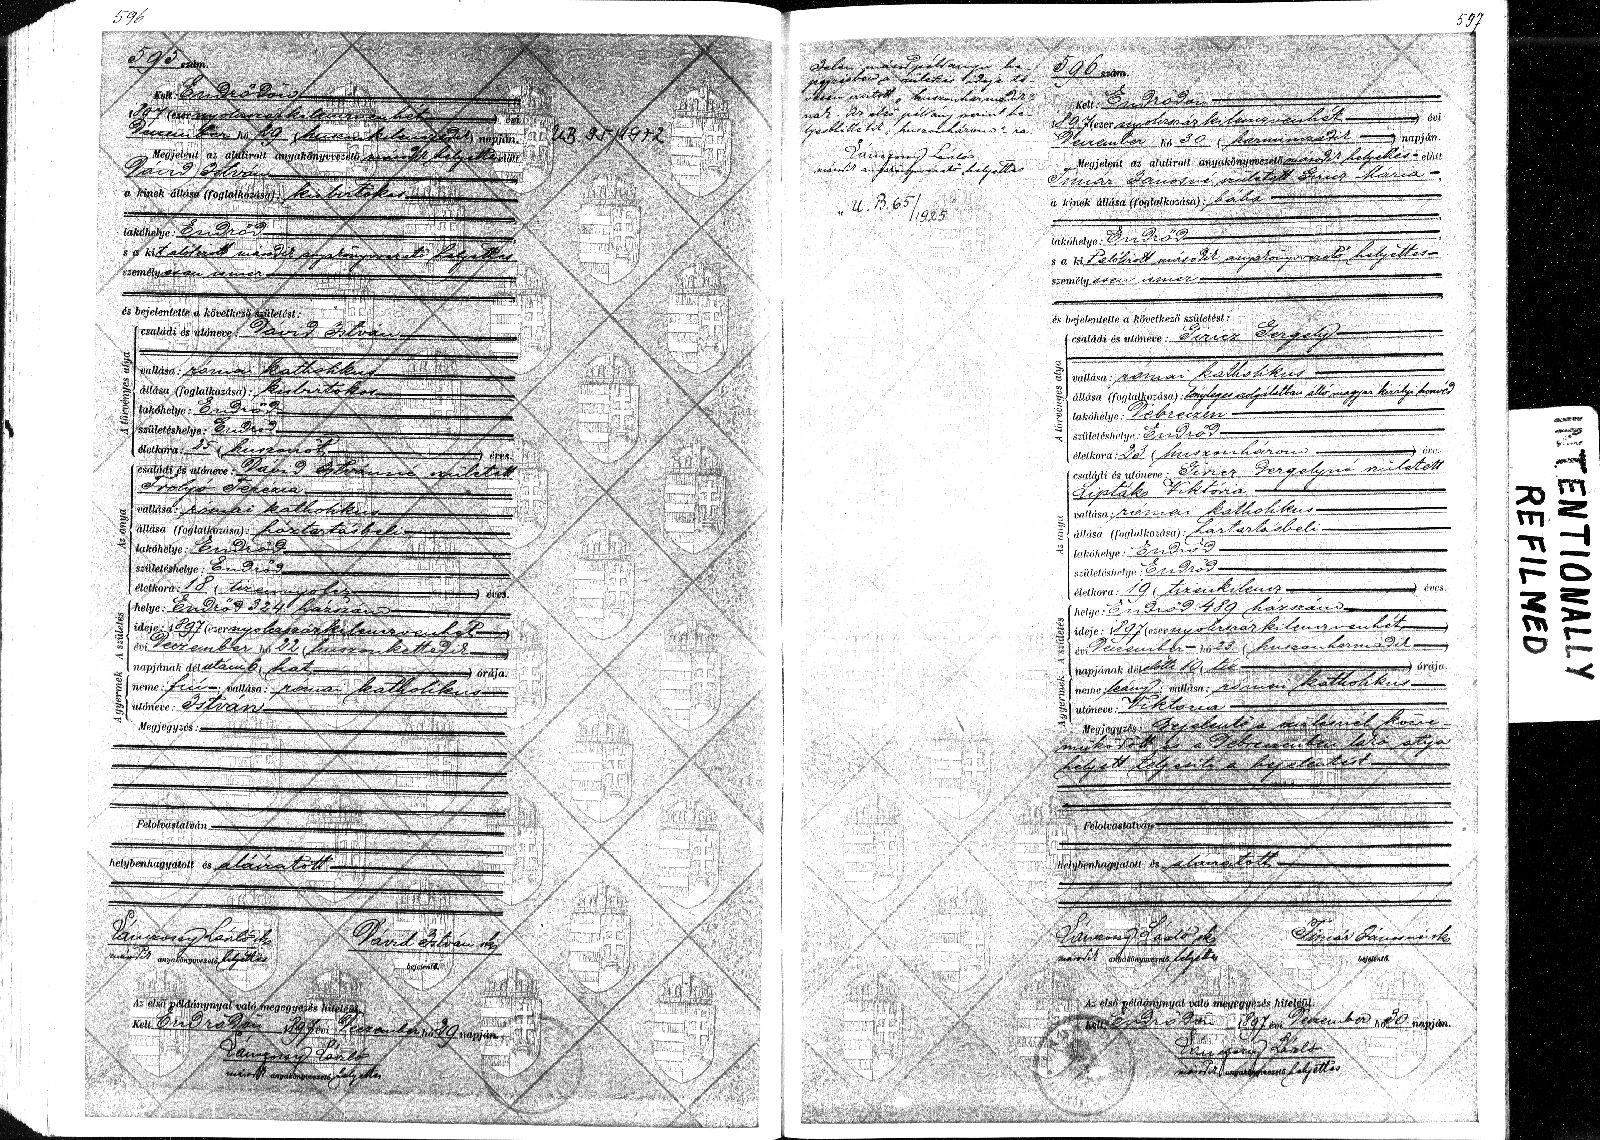 596
595 szám.
Kelt: Endrődön
1897 (ezernyolczszázkilenczvenhét) évi
Deczember hó 29 (huszonkilenczedik) napján.
U.B. 95/1942
Megjelent az alulirott anyakönyvvezető második helyettes előtt
Dávid István
a kinek állása (foglalkozása): kisbirtokos
lakóhelye: Endrőd
s a kit alólirott második anyakönyvvezető helyettes
személyesen ismer
és bejelentette a következő születést:
A törvényes atya
családi és utóneve: Dávid István
vallása: római katholikus
állása (foglalkozása): kisbirtokos
lakóhelye: Endrőd
születéshelye: Endrőd
életkora: 25 (huszonöt) éves.
Az anya
családi és utóneve: Dávid Istvánné született
Terézia
vallása: római katholikus
állása (foglalkozása): háztartásbeli
lakóhelye: Endrőd
születéshelye: Endrőd
életkora: 18 (tizennyolcz) éves.
A születés
helye: Endrőd 324 házszám
ideje: 1897 (ezernyolczszázkilenczvenhét)
évi Deczember hó 22 (huszonkettedik)
napjának délutáni 6 (hat) órája.
A gyermek
neme: fiú vallása: római katholikus
utóneve: István
Megjegyzés:
Felolvastatván
helybenhagyatott és aláiratott
László sk
második anyakönyvvezető helyettes
Dávid István sk
bejelentő.
Az első példánynyal való megegyezés hiteléül.
Kelt Endrődön 1897 évi Deczember hó 29 napján.
László
második anyakönyvvezető helyettes
597
László
második anyakönyvvezető helyettes
U. B. 65/1925
596 szám.
Kelt: Endrődön
1897 (ezernyolczszázkilenczvenhét) évi
Deczember hó 30 (harminczadik) napján.
Megjelent az alulirott anyakönyvvezető második helyettes előtt
Timár Jánosné született Giricz Mária
a kinek állása (foglalkozása): bába
lakóhelye: Endrőd
s a kit alólirott második anyakönyvvezető helyettes
személyesen ismer
és bejelentette a következő születést:
A törvényes atya
családi és utóneve: Giricz Gergely
vallása: római katholikus
állása (foglalkozása): tényleges szolgálatban álló magyar királyi honvéd
lakóhelye: Debreczen
születéshelye: Endrőd
életkora: 23 (huszonhárom) éves.
Az anya
családi és utóneve: Giricz Gergelyné született
Liptáks Viktória
vallása: római katholikus
állása (foglalkozása): háztartásbeli
lakóhelye: Endrőd
születéshelye: Endrőd
életkora: 19 (tizenkilencz) éves.
A születés
helye: Endrőd 489 házszám
ideje: 1897 (ezernyolczszázkilenczvenhét)
évi Deczember hó 23 (huszonharmadik)
napjának délelőtti 10 (tíz) órája.
A gyermek
neme: leány vallása: római katholikus
utóneve: Viktória
Megjegyzés: Bejelentő a szülésnél köz-
működött és a Debreczenben lakó atya
helyett teljesiti a bejelentést
Felolvastatván
helybenhagyatott és aláiratott
László sk
második anyakönyvvezető helyettes
Timár Jánosné sk
bejelentő.
Az első példánynyal való megegyezés hiteléül.
Kelt Endrődön 1897 évi Deczember hó 30 napján.
László
második anyakönyvvezető helyettes
INTENTIONALLY
REFILMED